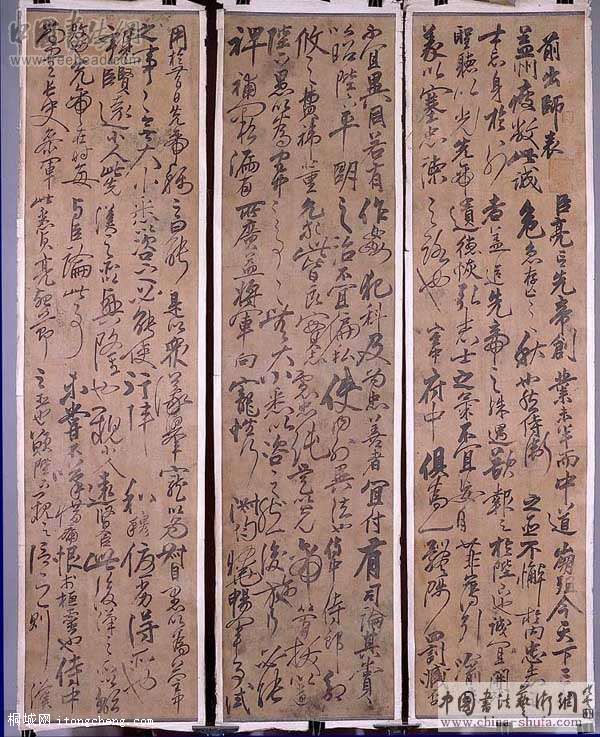 前出師表 臣亮言先帝創業未半而中道崩殂今天下三
益州疲敝此誠危急存亡之秋也然侍衛之臣不懈於內忠志
士忘身於外者蓋追先帝之殊遇欲報之於陛下也誠宜開
聖聽以光先帝遺德恢弘志士之氣不宜妄自菲薄引
義以塞忠諫之路也宮中府中俱為一體陟罰臧否
不宜異同若有作姦犯科及為忠善者宜付有司論其
以昭陛下平明之治不宜偏私使內外異法也侍中侍郎郭
攸之費禕董允等此皆良實志慮忠純是以先帝簡拔以遺
陛下愚以為宮中之事事無大小悉以咨之然後施行必能
裨補闕漏有所廣益將軍向寵性行淑均曉暢軍事試
用於昔日先帝稱之曰能是以眾議舉寵以為督愚以為營中
之事事無大小悉以咨之必能使行陣和睦優劣得所也
親賢臣遠小人此先漢所以興隆也親小人遠賢臣此後漢之所以傾
頹先帝在時每與臣論此事未嘗不歎息痛恨於桓靈也侍中
尚書長史參軍此悉貞亮死節之臣也願陛下親之信之則漢
中国書法藝術網
www.freehead.com
桐城网 itongcheng.com
中国書法藝術網
www.china-shufa.com